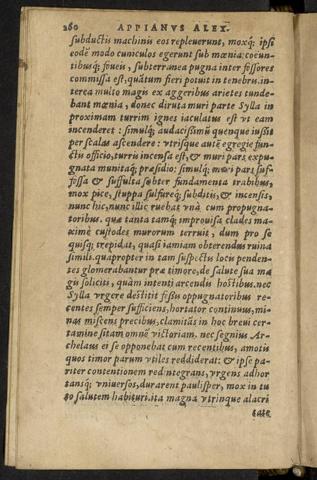 280 APPIANVS ALEX.
subductis machinis eos repleuerunt, moxq́; ipsi
eodẽ modo cuniculos egerunt sub mœnia: coeun-
tibusq́; foueis, subterranea pugna inter fossores
commissa est, quãtum fieri potuit in tenebris. in-
terea multo magis ex aggeribus arietes tunde-
bant mœnia, donec diruta muri parte Sylla in
proximam turrim ignes iaculatus est vt eam
incenderet: simulq́; audacissimũ quenque iussit
per scalas ascendere: vtrisque autẽ egregie fun-
ctis officio, turris incensa est, & muri pars expu-
gnata munitaq́; præsidio: simulq́; muri pars suf-
fossa & suffulta subter fundamenta trabibus,
mox pice, stuppa sulfureq́; subditis, & incensis,
nunc hic, nunc illic ruebat vnà cum propugna-
toribus. quæ tanta tamq́; improuisa clades ma-
ximè custodes murorum terruit, dum pro se
quisq; trepidat, quasi iamiam obterendus ruina
simili. quapropter in tam suspectis locis penden-
tes glomerabantur præ timore, de salute sua ma
gis soliciti, quàm intenti arcendis hostibus. nec
Sylla vrgere destitit fessis oppugnatoribus re-
centes semper sufficiens, hortator continuus, mi-
nas miscens precibus, clamitãs in hoc breui cer-
tamine sitam omnẽ victoriam. nec segnius Ar-
chelaus ei se opponebat cum recentibus, amotis
quos timor parum vtiles reddiderat: & ipse pa-
riter contentionem redintegrans, vrgens adhor
tansq́; vniuersos, durarent paulisper, mox in tu
to salutem habituri. ita magna vtrinque alacri
tate